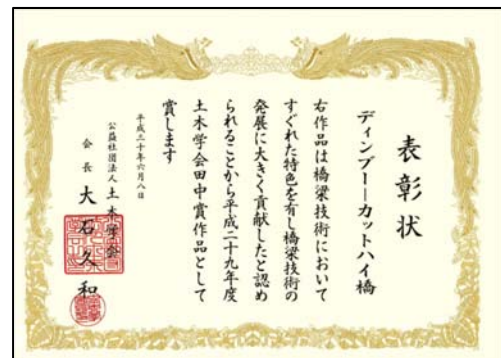 表彰状
ディンブー―カットハイ橋
右作品は橋梁技術において
すぐれた特色を有し橋梁技術の
発展に大きく貢献したと認め
られることから平成二十九年度
土木学会田中賞作品として
賞します
平成三十年六月八日
公益社団法人 土木学会
会長 大石久和